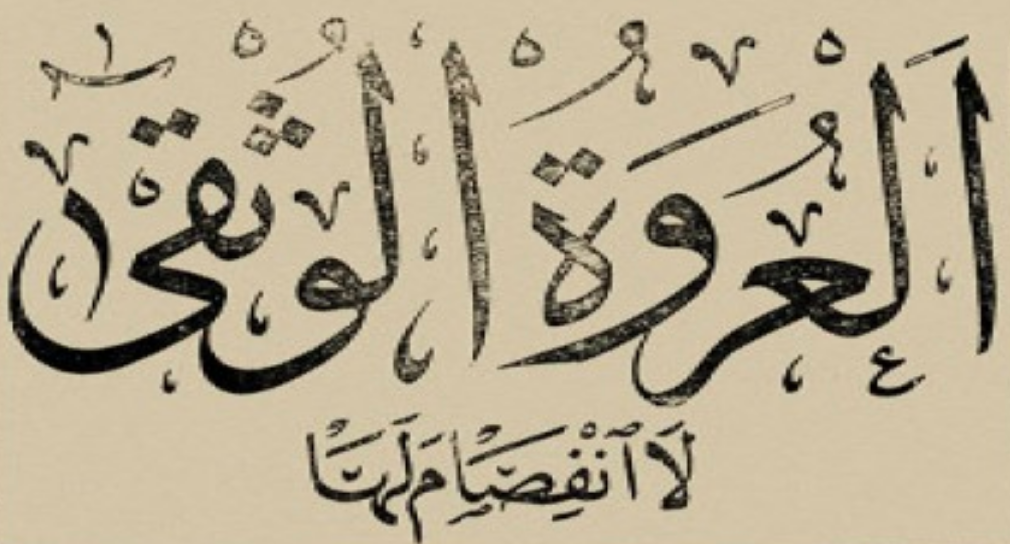 اَلْعُرْوَةُ الْوُثْقىٰ
لَا ٱنْفِصَامَ لَهَا